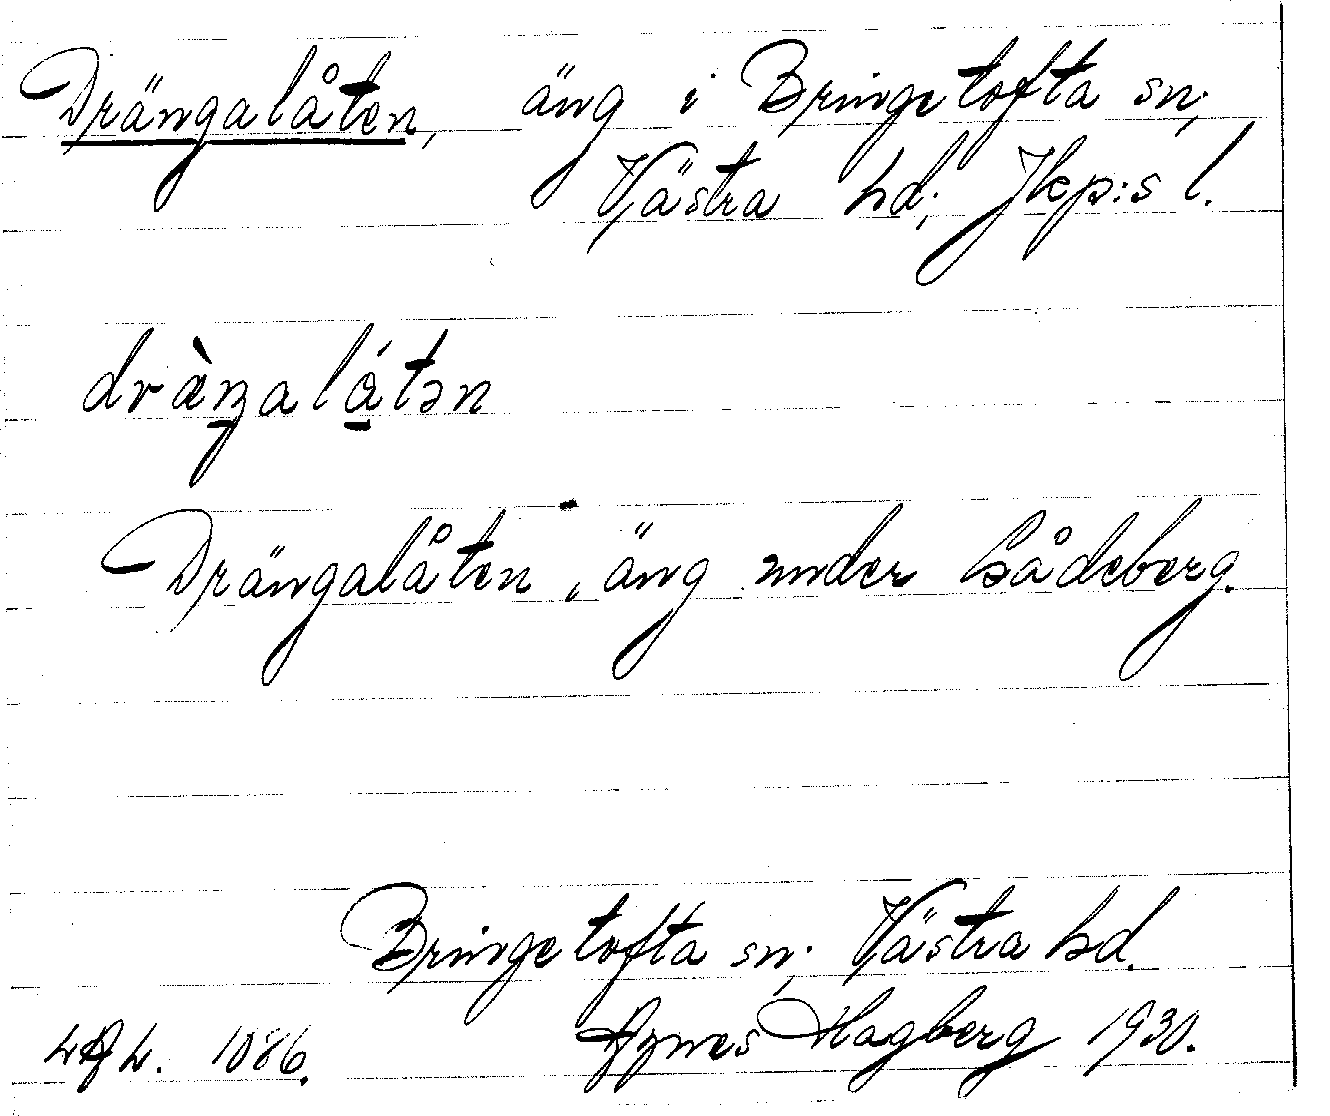 Drängalåten, äng i Bringetofta sn;
Västra hd; Jkp:s l.
dràŋalåtən
Drängalåten, äng under Bådeberg.
Bringetofta sn; Västra hd.
1086. Agnes Hagberg 1930.